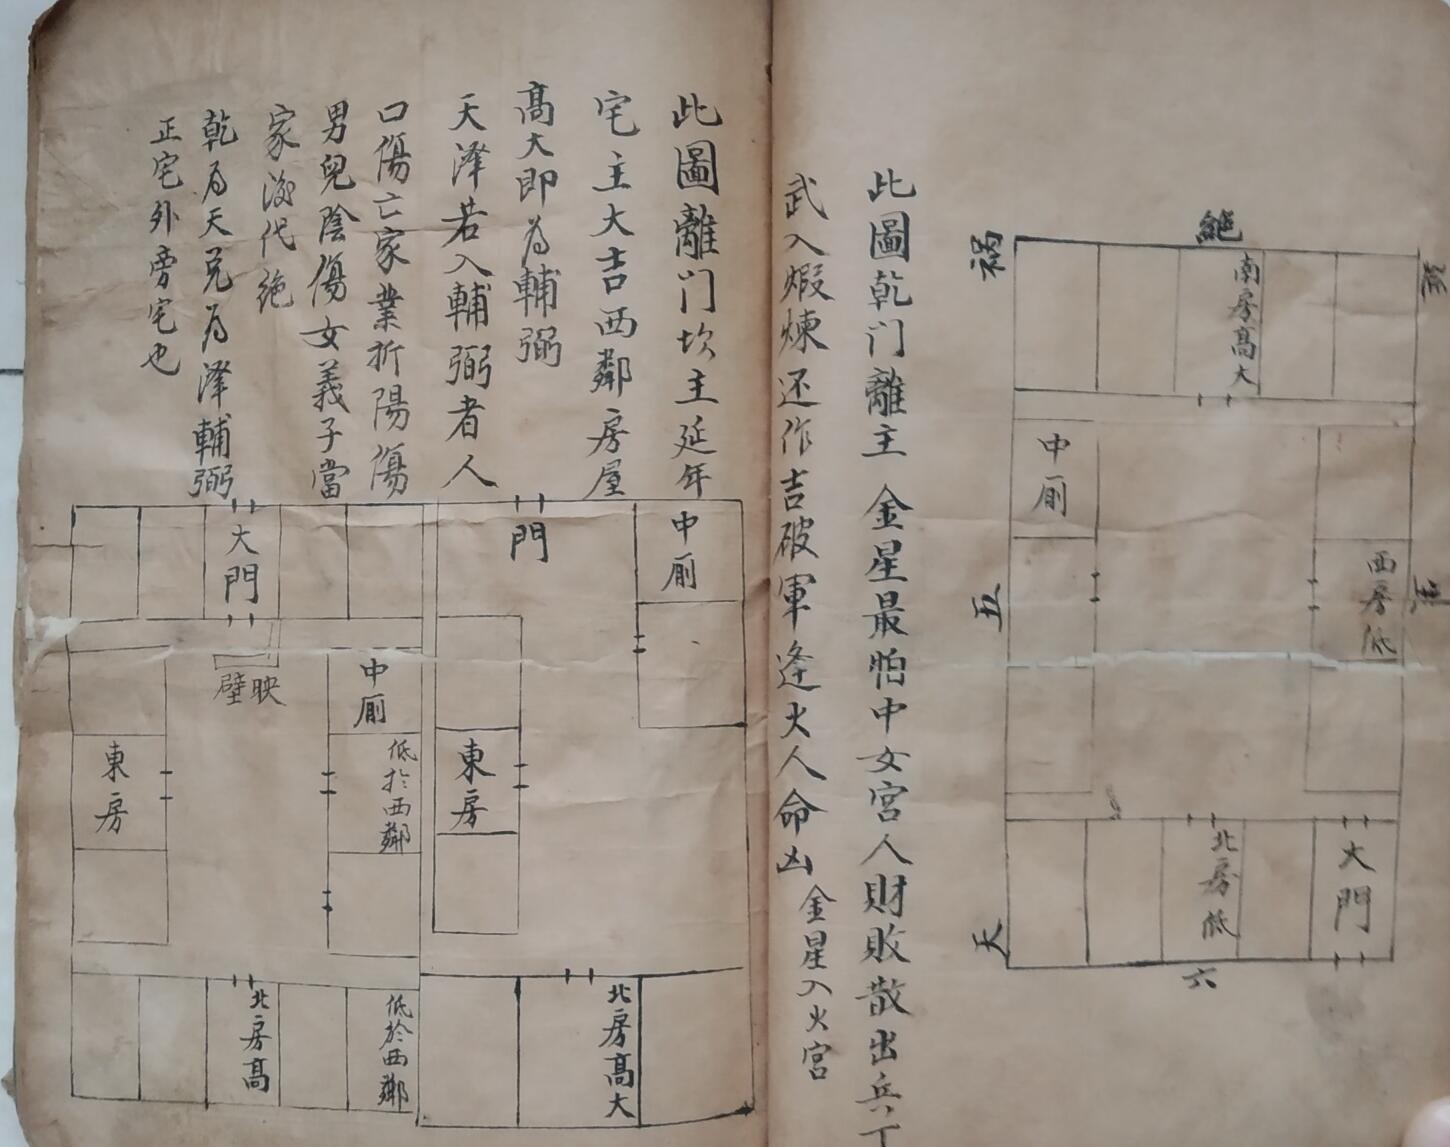 此圖乾门離主 金星最怕中女宮人財敗散出兵丁
武入煆煉还作吉破軍逢火人命凶
金星入火宮
絕
禍
五
天
六
南房高大
中厠
西房低
北房低
大門
此圖離门坎主延年
宅主大吉西鄰房屋
高大即為輔弼
天泽若入輔弼者人
口傷亡家業折陽傷
男兒陰傷女義子當
家後代绝
乾為天兑為泽輔弼
正宅外旁宅也
中厠
門
東房
北房高大
大門
映壁
中厠
低於西鄰
東房
北房高
低於西鄰